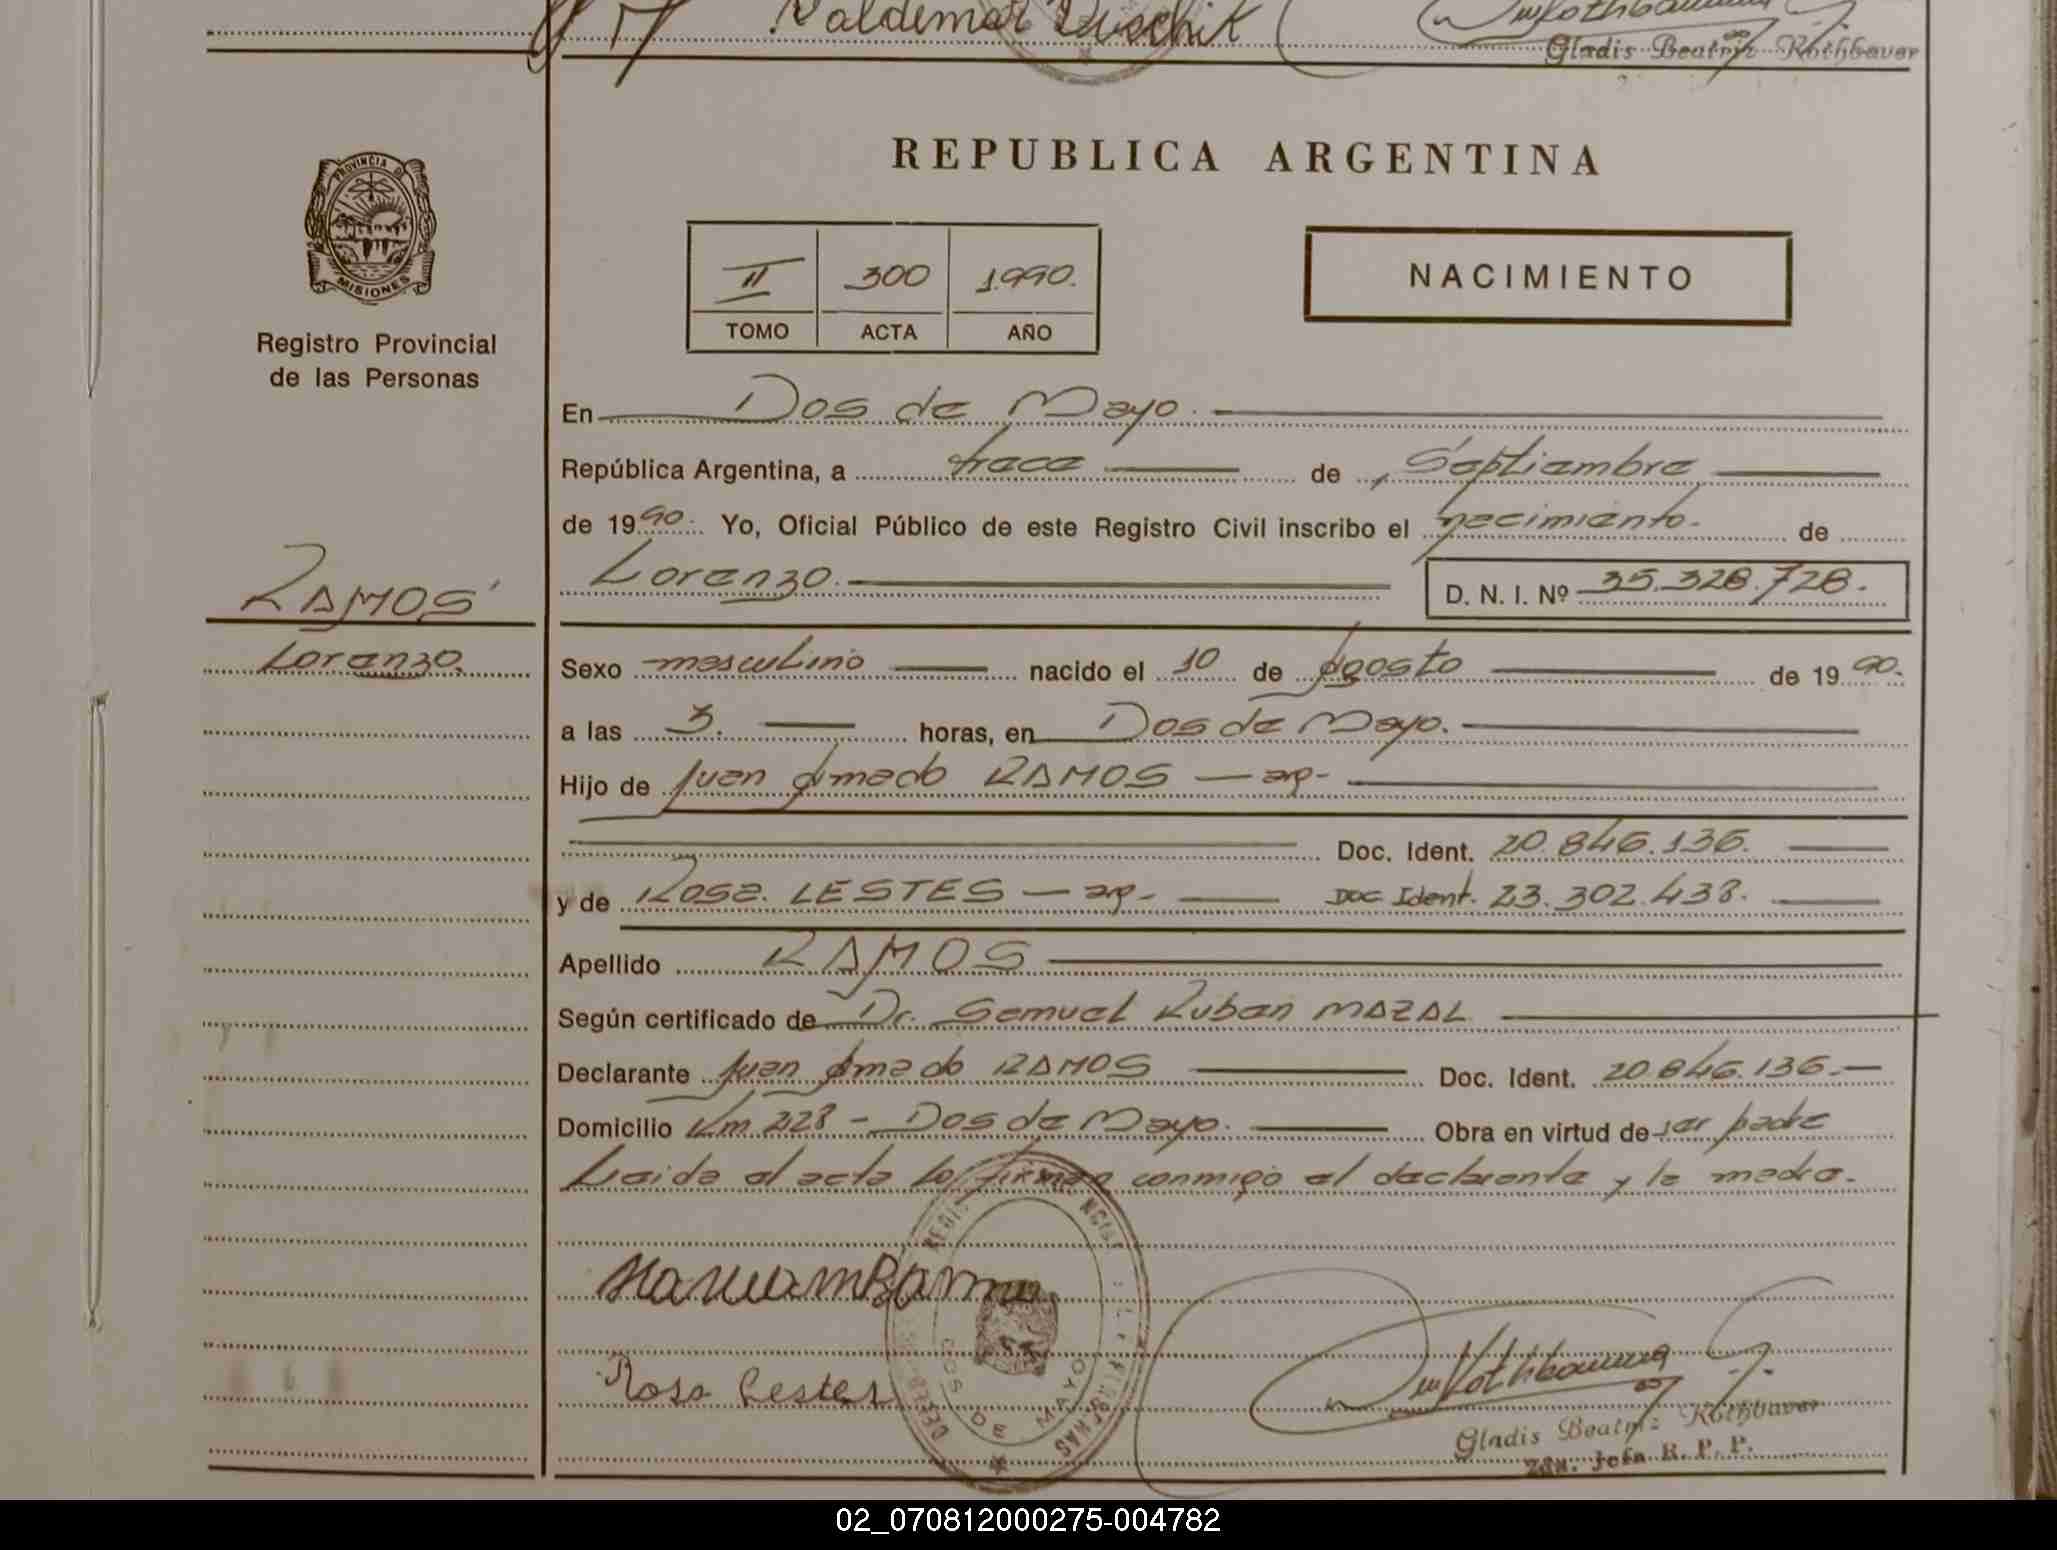 Valdemar
Gladis Beatriz Rothbaver
REPUBLICA ARGENTINA
PROVINCIA D
MISIONES
Registro Provincial
de las Personas
II 300 1990.
TOMO ACTA AÑO
NACIMIENTO
En Dos de Mayo.
República Argentina, a trece de Septiembre
de 1990. Yo, Oficial Público de este Registro Civil inscribo el nacimiento. de
Lorenzo. D. N. I. Nº 35.328.728.
RAMOS
Lorenzo.
Sexo masculino nacido el 10 de Agosto de 1990.
a las 3. horas, en Dos de Mayo.
Hijo de Juan Amado RAMOS — arg-
Doc. Ident. 20.846.136.
y de Rosa. LESTES — arg- Doc Ident. 23.302.438.
Apellido RAMOS
Según certificado de Dr. Samuel Ruben MAZAL
Declarante Juan Amado RAMOS Doc. Ident. 20.846.136.—
Domicilio Km. 228 - Dos de Mayo. Obra en virtud de ser padre
Leida el acta la firman conmigo el declarante y la madre.
Rosa Lestes
DOS DE MAYO
Gladis Beatriz Rothbaver
Jefa R. P. P.
02_070812000275-004782